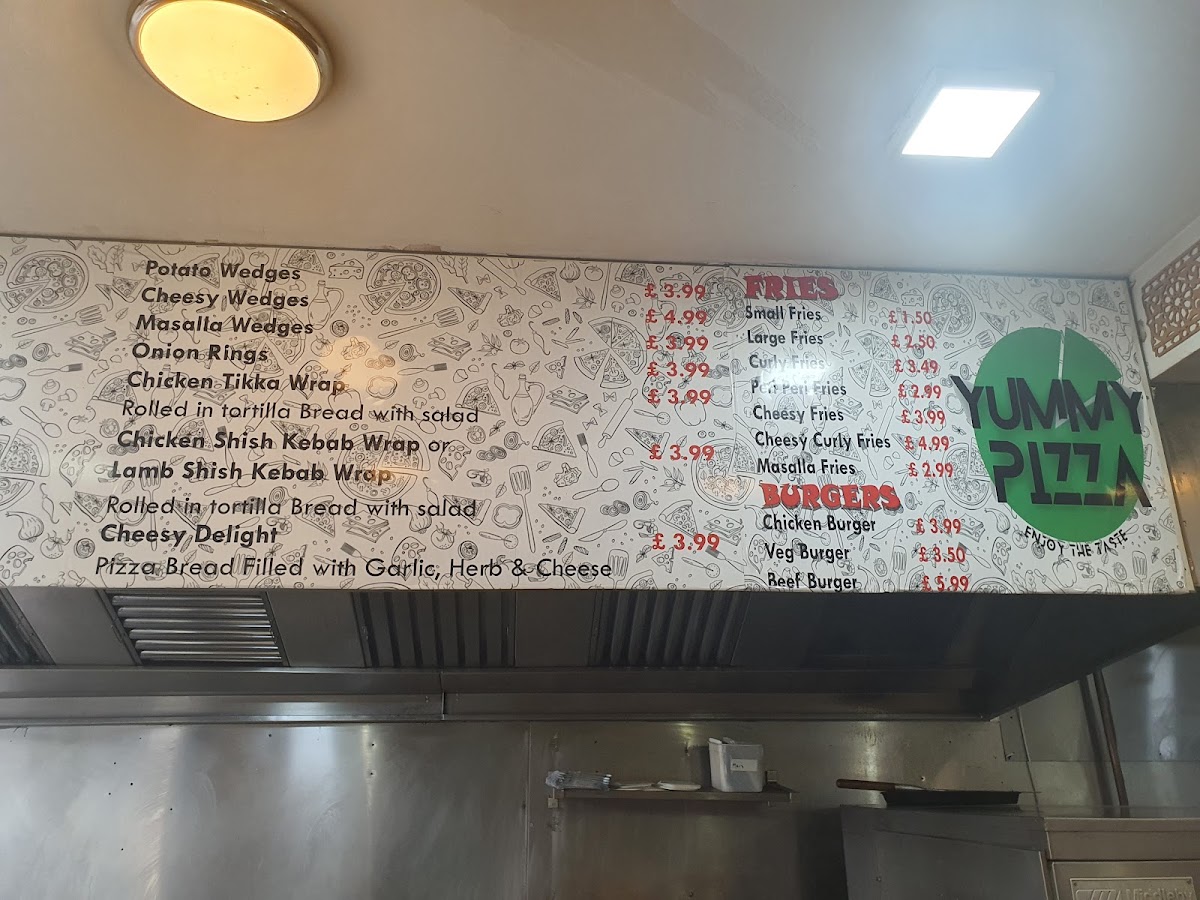 Potato Wedges £ 3.99
Cheesy Wedges £ 4.99
Masalla Wedges £ 3.99
Onion Rings £ 3.99
Chicken Tikka Wrap £ 3.99
Rolled in tortilla Bread with salad
Chicken Shish Kebab Wrap or
Lamb Shish Kebab Wrap £ 3.99
Rolled in tortilla Bread with salad
Cheesy Delight £ 3.99
Pizza Bread Filled with Garlic, Herb & Cheese
FRIES
Small Fries £ 1.50
Large Fries £ 2.50
Curly Fries £ 3.49
Peri Peri Fries £ 2.99
Cheesy Fries £ 3.99
Cheesy Curly Fries £ 4.99
Masalla Fries £ 2.99
BURGERS
Chicken Burger £ 3.99
Veg Burger £ 3.50
Beef Burger £ 5.99
YUMMY
PIZZA
ENJOY THE TASTE
Middleby